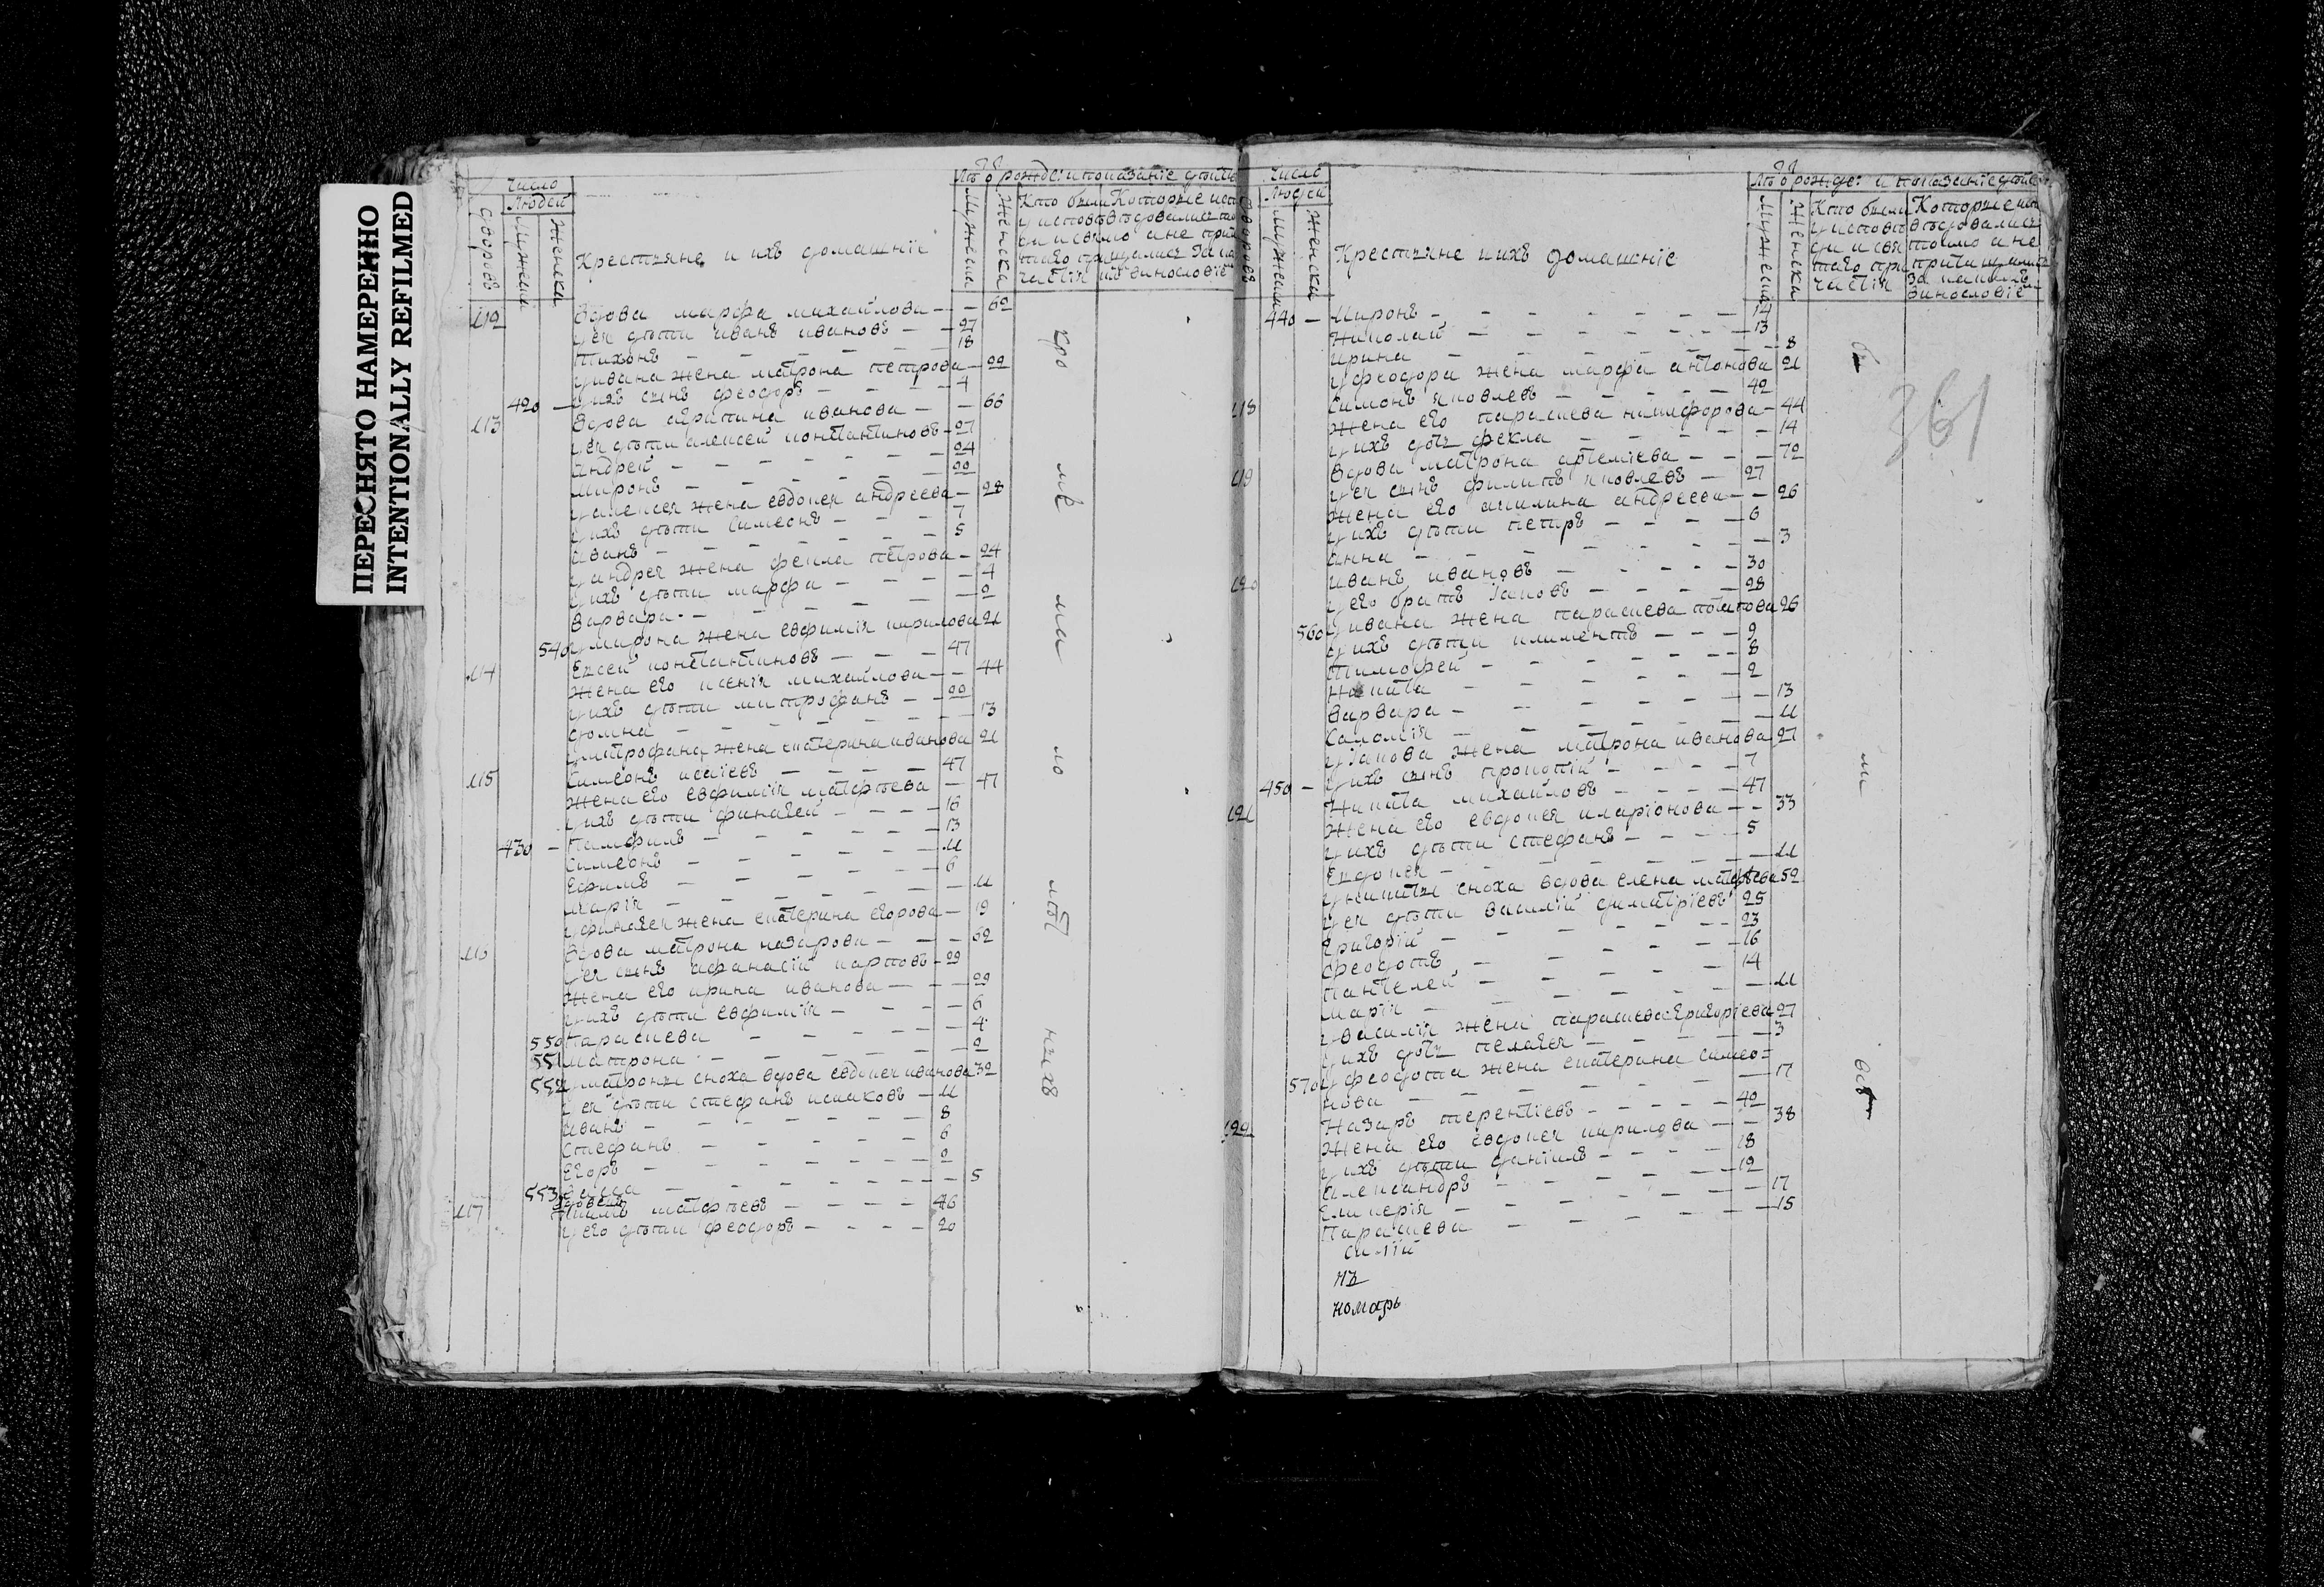 ПЕРЕСНЯТО НАМЕРЕННО
INTENTIONALLY REFILMED
число
Людей
дворовъ
Мужеска
Женска
Крестьяне и ихъ домашнїе
Мужеска
Женска
Кто были
у исповѣ
таго
112 Вдова марфа михайлова - - 60
у ея дѣти иванъ ивановъ - - 27
Тихонъ - 18
у ивана жена матрона петрова - 22
420 - у ихъ сынъ феодоръ - 4
113 Вдова агрипина иванова - - 66
у ея дѣти алексей константиновъ - 27
Андрей - 24
Миронъ - 20
у алексея жена евдокея андреева - 28
у ихъ дѣти Симеонъ - 7
Иванъ - 5
у андрея жена фекла петрова - 24
у ихъ дѣти марфа - 4
Варвара - 2
540 у мирона жена евфимїя кирилова 21
114 Евсей константиновъ - 47
Жена его ксенїя михайлова - 44
у ихъ дѣти митрофанъ - 22
домна - 13
у митрофана жена екатерина иванова 21
115 Симеонъ исаїевъ - 47
Жена его евфимїя матфѣева - 47
у ихъ дѣти финагей - 16
430 - Памфилъ - 13
Симеонъ - 11
Ефимъ - 6
марїя - 11
у финагея жена екатерина егорова - 19
116 Вдова матрона назарова - 62
у ея сынъ афанасїй карповъ - 29
Жена его ирина иванова - 29
у ихъ дѣти евфимїя - 6
550 Параскева - 4
551 матрона - 2
552 у матроны сноха вдова евдокея иванова 32
у ея дѣти стефанъ исаковъ - 11
Иванъ - 8
Стефанъ - 6
Егоръ - 2
553 - 5
117 вдовецъ
матфѣевъ - 46
у его дѣти феодоръ - 20
число
Людей
дворовъ
Мужеска
Женска
Крестьяне и ихъ домашнїе
Мужеска
Женска
Кто были
361
440 - Миронъ - 14
Николай - 13
Ирина - 8
у феодора жена марфа антонова 21
118 Симонъ яковлевъ - 42
Жена его параскева никифорова - 44
у ихъ дочь фекла - 14
119 Вдова матрона артемїева - 72
у ея сынъ филипъ яковлевъ - 27
Жена его акилина андреева - 26
у ихъ дѣти петръ - 6
Анна - 3
120 Иванъ ивановъ - 30
у его братъ Іаковъ - 28
у ивана жена параскева потапова 26
560 у ихъ дѣти климентъ - 9
Тимофей - 8
Никита - 2
Варвара - 13
Саломїя - 11
у Іакова жена матрона иванова 27
450 - у ихъ сынъ прокопїй - 7
121 Никита михайловъ - 47
Жена его евдокея иларїонова - 33
у ихъ дѣти стефанъ - 5
Евдокея - 11
у никиты сноха вдова елена матфѣева 52
у ея дѣти василїй димитрїевъ 25
Григорїй - 23
феодотъ - 16
Пантелей - 14
Марїя - 11
у василїя жена параскева Григорїева 27
у ихъ дочь пелагея - 3
570 у феодота жена екатерина симео=
нова - 17
122 Назаръ терентїевъ - 42
Жена его евдокея кирилова - 38
у ихъ дѣти данїилъ - 18
Александръ - 12
Гликерїя - 17
Параскева - 15
номарь